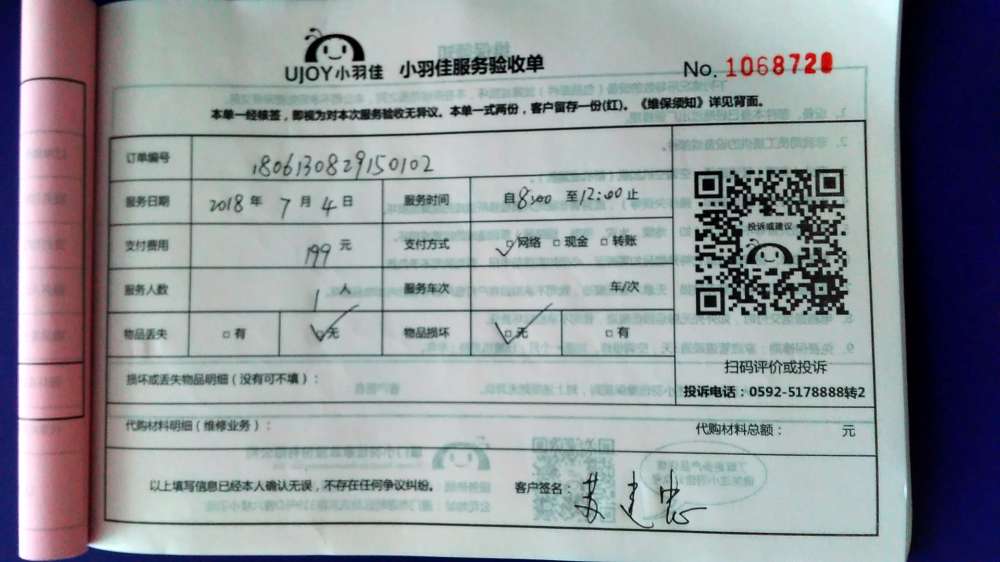 UJOY小羽佳 小羽佳服务验收单 No. 1068728
本单一经核签，即视为对本次服务验收无异议。本单一式两份，客户留存一份(红)。《维保须知》详见背面。
订单编号 1806130829150102
服务日期 2018年 7月 4日 服务时间 自8:00 至12:00止
支付费用 199 元 支付方式 □网络 □现金 □转账
服务人数 1 人 服务车次 车/次
物品丢失 □有 □无 物品损坏 □无 □有
投诉或建议
扫码评价或投诉
投诉电话：0592-5178888转2
损坏或丢失物品明细（没有可不填）：
代购材料明细（维修业务）： 代购材料总额： 元
以上填写信息已经本人确认无误，不存在任何争议纠纷。 客户签名： 苏建忠